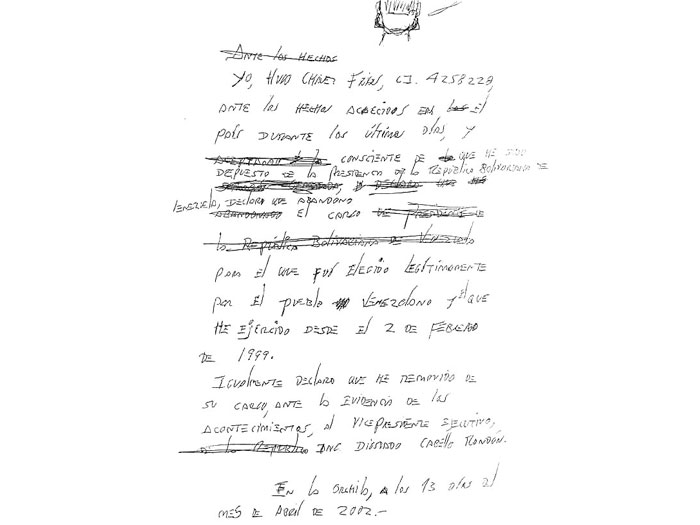 Ante los hechos
Yo, Hugo Chávez Frías, C.I. 4258228,
ante los hechos acaecidos en el
país durante los últimos días, y
aceptando consciente de que he sido
depuesto de la Presidencia de la República Bolivariana de
Venezuela, declaro que abandono
abandonado el cargo de Presidente de
la República Bolivariana de Venezuela
para el que fuí elegido legítimamente
por el pueblo venezolano y el que
he ejercido desde el 2 de febrero
de 1999.
Igualmente declaro que he removido de
su cargo, ante la evidencia de los
acontecimientos, al Vicepresidente Ejecutivo,
Ing. Diosdado Cabello Rondón.
En la Orchila, a los 13 días del
mes de Abril de 2002.-